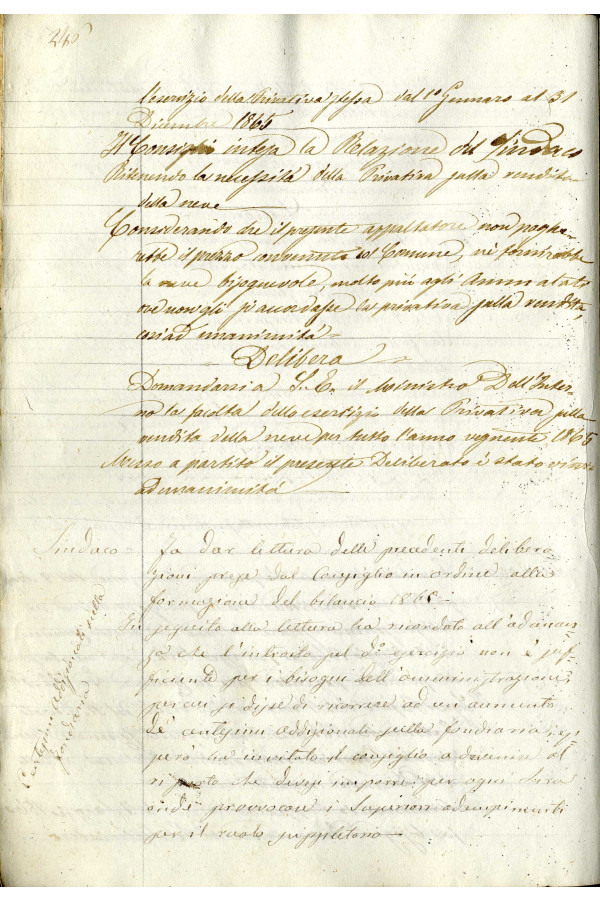 246
l'esercizio della Privativa stessa dal 1º Gennaro al 31
Dicembre 1865
Il Consiglio intesa la Relazione del Sindaco
Ritenendo la necessità della Privativa sulla vendita
della neve
Considerando che il presente appaltatore non paghe=
rebbe il prezzo convenuto col Comune, nè fornirebbe
la neve bisognevole, molto più agli Ammalati
ove non gli si accordasse la privativa sulla vendita,
così ad unanimità=
Delibera
Domandarsi a S. E. il Ministro Dell'Inter=
no la facoltà dello esercizio della Privativa sulla
vendita della neve per tutto l'anno vegnente 1865
Messo a partito il presente Deliberato è stato vinto
ad unanimità
Sindaco= Fa dar lettura delle precedenti delibera
zioni prese dal Consiglio in ordine alla
formazione del bilancio 1865=
In seguito alla lettura ha ricordato all'adunan=
za che l'introito pel dº esercizio non è suf=
ficiente per i bisogni dell'amministrazione,
per cui si disse di ricorrere ad un aumento
de' centesimi addizionali sulla fondiaria; ep=
però ha invitato il consiglio a devenire al
riparto che devesi imporre per ogni lira
onde provocare i Superiori adempimenti
per il ruolo suppletorio
Centesimi addizionali sulla
fondiaria